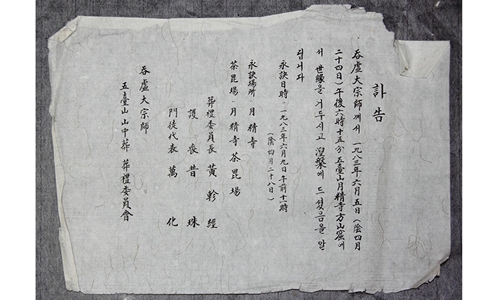 訃告
吞虛大宗師께서 一九八三年 六月五日(陰四月
二十四日) 午後六時十五分 五臺山 月精寺 方山窟에
서 世緣을 거두시고 涅槃에 드셨음을 알
립니다
永訣日時 · 一九八三年 六月九日 午前十一時
(陰四月二十八日)
永訣場所 · 月精寺
茶毘場 · 月精寺 茶毘場
葬禮委員長 黃 軫 經
護喪 昔珠
門徒代表 萬化
吞虛大宗師
五臺山 山中葬 葬禮委員會